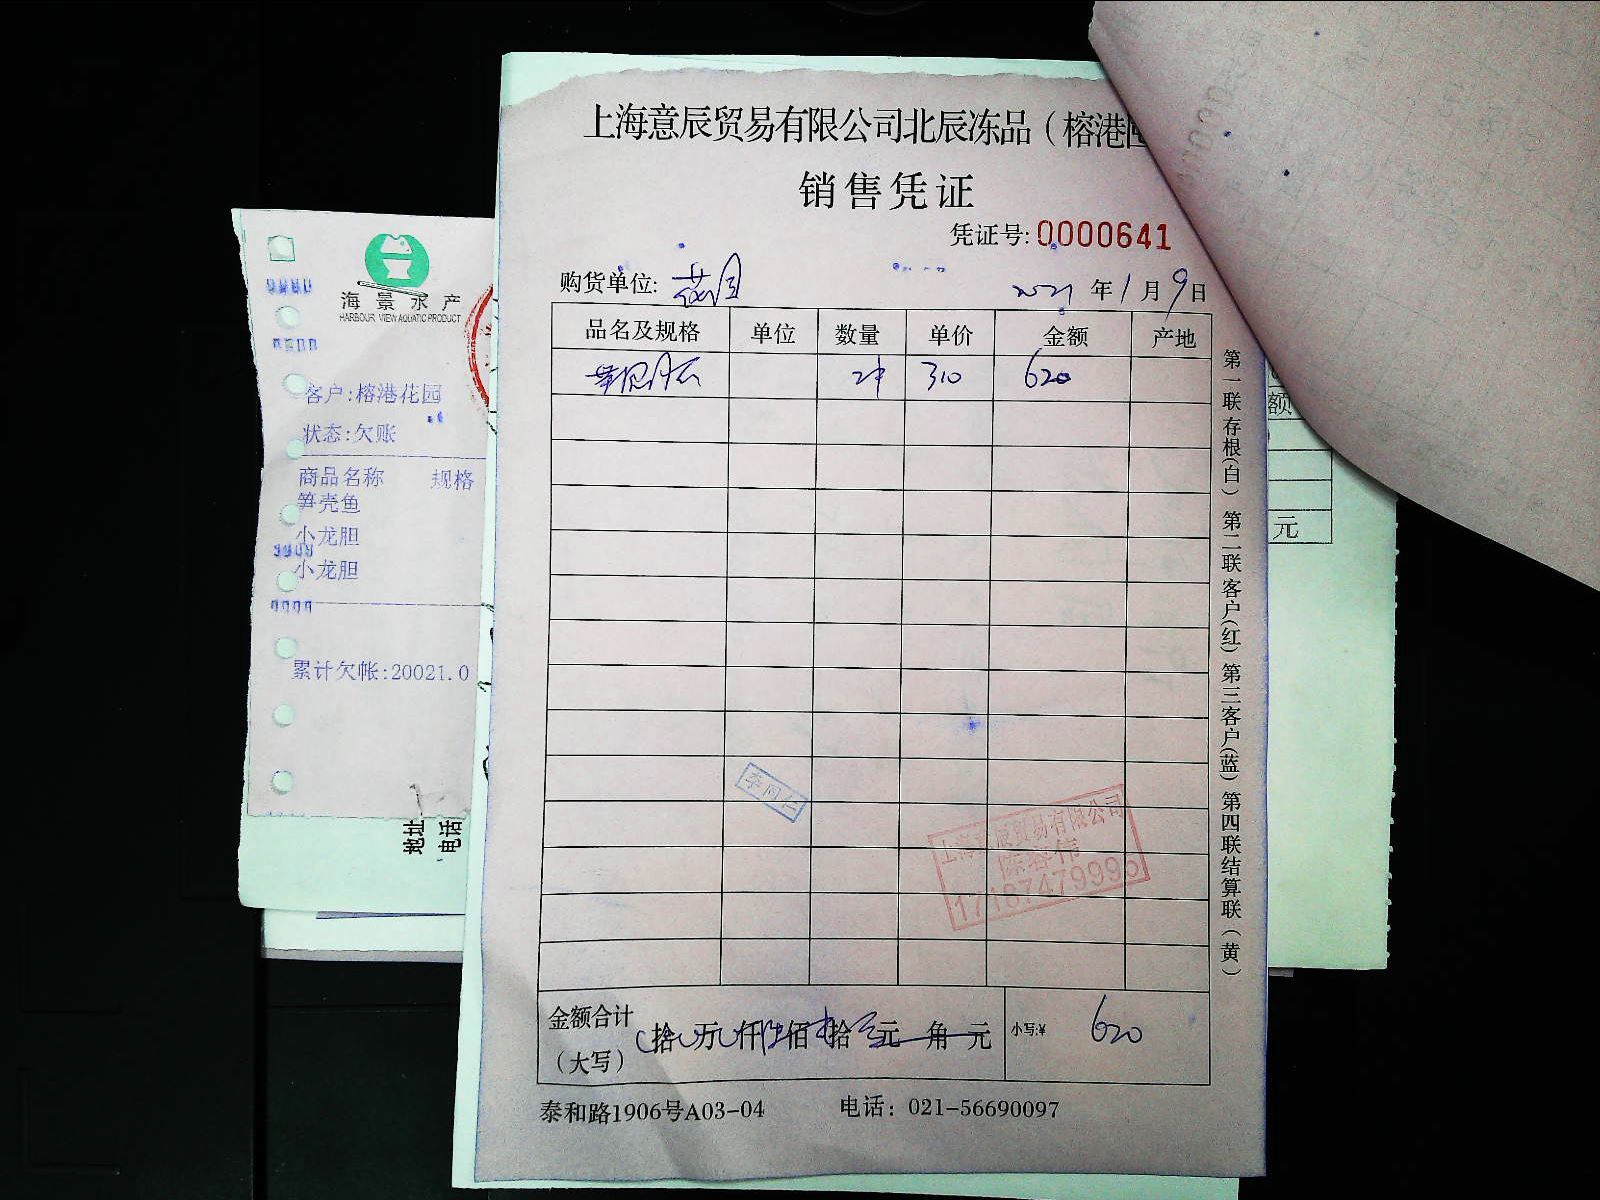 上海意辰贸易有限公司北辰冻品（榕港
销售凭证
凭证号:0000641
购货单位: 花园
2021 年 1 月 9 日
品名及规格 单位 数量 单价 金额 产地
2件 310 620
金额合计
（大写）
拾 万 仟 陆佰 拾 元 角 元
小写:¥ 620
泰和路1906号A03-04 电话: 021-56690097
第一联存根(白) 第二联客户(红) 第三客户(蓝) 第四联结算联(黄)
上海意辰贸易有限公司
海景水产
HARBOUR VIEW AQUATIC PRODUCT
客户:榕港花园
状态:欠账
商品名称 规格
笋壳鱼
小龙胆
小龙胆
累计欠帐:20021.0
地址
电话
额
元